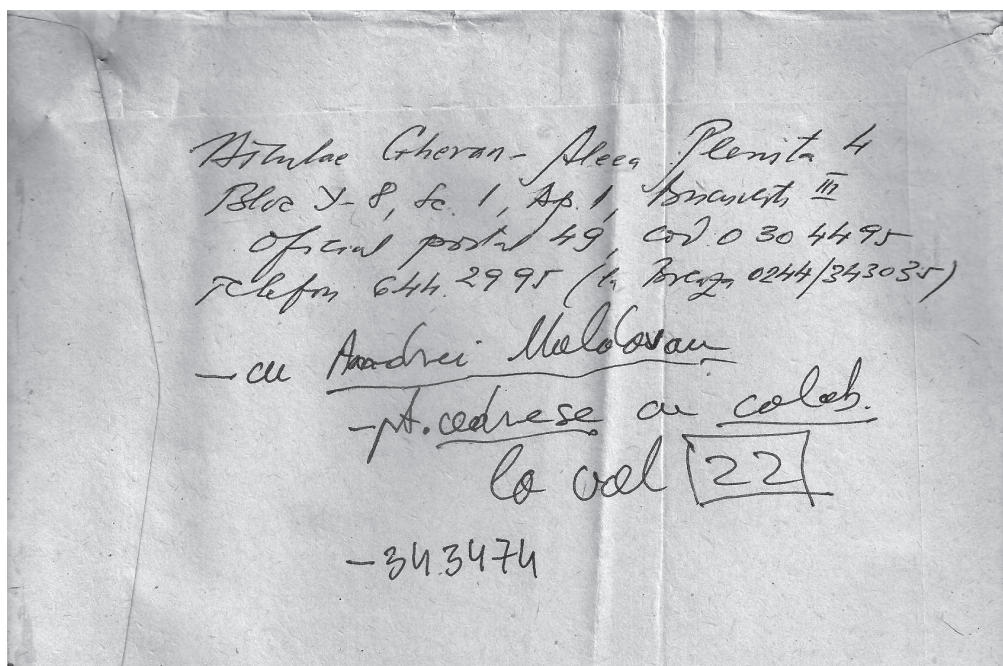 Niculae Gheran - Aleea Plenita 4
Bloc Y-8, sc. 1, Ap. 1, Bucuresti III
Oficial postal 49, cod. 0304495
Telefon 644.2995 (la Breaza 0244/343035)
- cu Andrei Moldovan
- pt. adrese cu colab.
la vol 22
- 343474